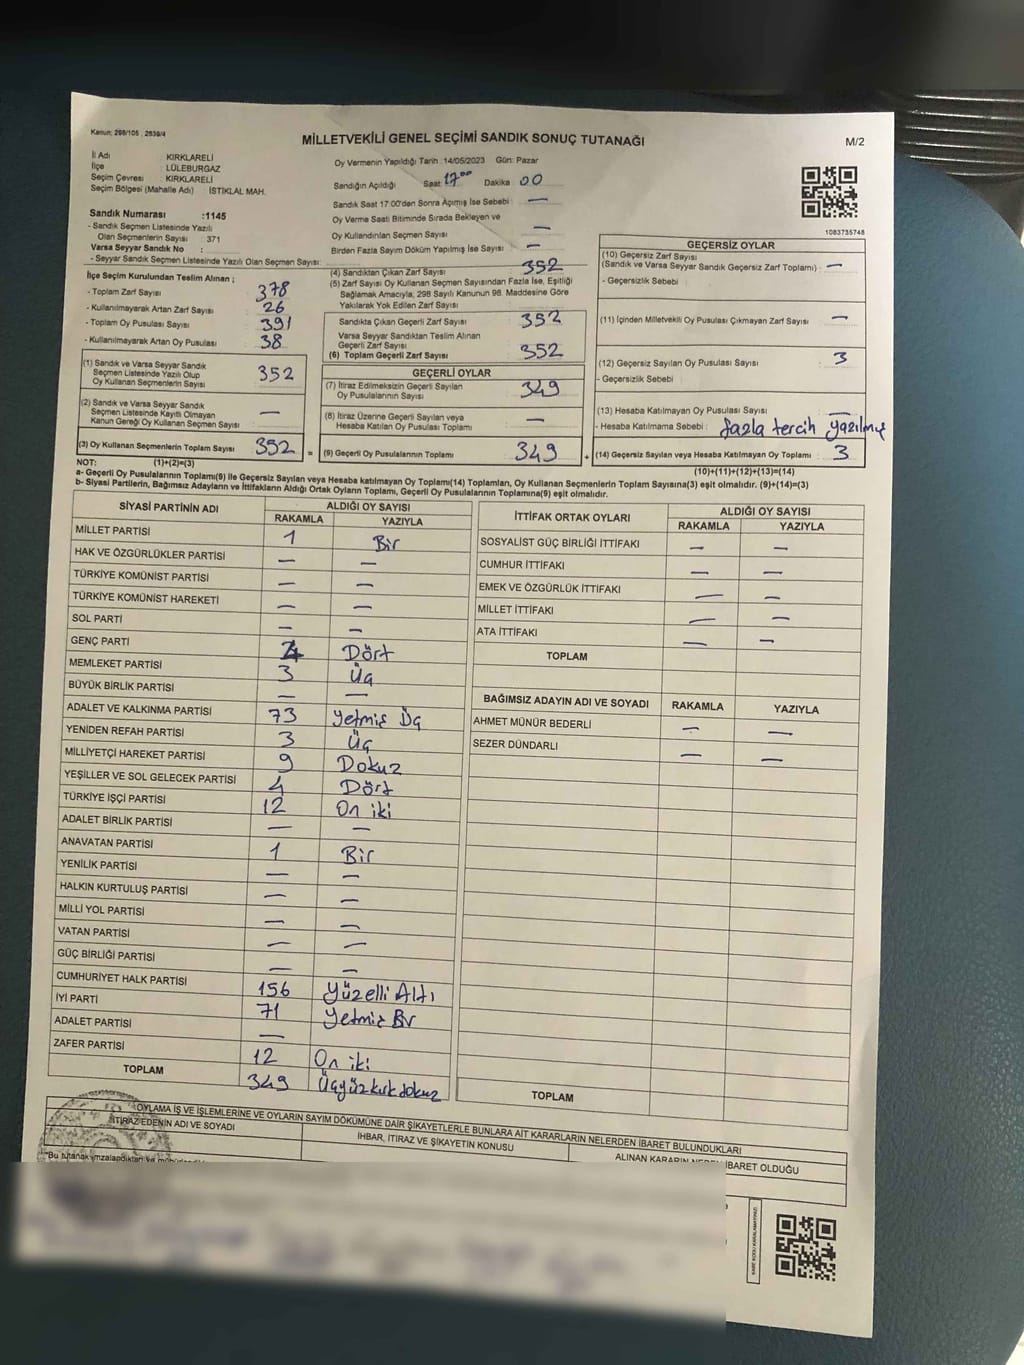 Kanun: 298/105 , 2839/4
MİLLETVEKİLİ GENEL SEÇİMİ SANDIK SONUÇ TUTANAĞI
M/2
İl Adı : KIRKLARELİ
İlçe : LÜLEBURGAZ
Seçim Çevresi : KIRKLARELİ
Seçim Bölgesi (Mahalle Adı) : İSTİKLAL MAH.
Oy Vermenin Yapıldığı Tarih : 14/05/2023 Gün: Pazar
Sandığın Açıldığı Saat 17:00 Dakika 00
Sandık Saat 17:00'den Sonra Açılmış İse Sebebi : —
Oy Verme Saati Bitiminde Sırada Bekleyen ve
Oy Kullandırılan Seçmen Sayısı : —
Birden Fazla Sayım Döküm Yapılmış İse Sayısı : —
1083735748
Sandık Numarası :1145
- Sandık Seçmen Listesinde Yazılı
Olan Seçmenlerin Sayısı : 371
Varsa Seyyar Sandık No :
- Seyyar Sandık Seçmen Listesinde Yazılı Olan Seçmen Sayısı:
İlçe Seçim Kurulundan Teslim Alınan ;
- Toplam Zarf Sayısı : 378
- Kullanılmayarak Artan Zarf Sayısı : 26
- Toplam Oy Pusulası Sayısı : 391
- Kullanılmayarak Artan Oy Pusulası : 38
(1) Sandık ve Varsa Seyyar Sandık
Seçmen Listesinde Yazılı Olup
Oy Kullanan Seçmenlerin Sayısı : 352
(2) Sandık ve Varsa Seyyar Sandık
Seçmen Listesinde Kayıtlı Olmayan
Kanun Gereği Oy Kullanan Seçmen Sayısı : —
(3) Oy Kullanan Seçmenlerin Toplam Sayısı : 352 =
(1)+(2)=(3)
(4) Sandıktan Çıkan Zarf Sayısı : 352
(5) Zarf Sayısı Oy Kullanan Seçmen Sayısından Fazla İse, Eşitliği
Sağlamak Amacıyla, 298 Sayılı Kanunun 98. Maddesine Göre
Yakılarak Yok Edilen Zarf Sayısı :
Sandıkta Çıkan Geçerli Zarf Sayısı : 352
Varsa Seyyar Sandıktan Teslim Alınan
Geçerli Zarf Sayısı :
(6) Toplam Geçerli Zarf Sayısı : 352
GEÇERLİ OYLAR
(7) İtiraz Edilmeksizin Geçerli Sayılan
Oy Pusulalarının Sayısı : 349
(8) İtiraz Üzerine Geçerli Sayılan veya
Hesaba Katılan Oy Pusulası Toplamı : —
(9) Geçerli Oy Pusulalarının Toplamı : 349 +
GEÇERSİZ OYLAR
(10) Geçersiz Zarf Sayısı
(Sandık ve Varsa Seyyar Sandık Geçersiz Zarf Toplamı) : —
- Geçersizlik Sebebi :
(11) İçinden Milletvekili Oy Pusulası Çıkmayan Zarf Sayısı : —
(12) Geçersiz Sayılan Oy Pusulası Sayısı : 3
- Geçersizlik Sebebi :
(13) Hesaba Katılmayan Oy Pusulası Sayısı : —
- Hesaba Katılmama Sebebi : fazla tercih yazılmış
(14) Geçersiz Sayılan veya Hesaba Katılmayan Oy Toplamı : 3
(10)+(11)+(12)+(13)=(14)
NOT:
a- Geçerli Oy Pusulalarının Toplamı(9) ile Geçersiz Sayılan veya Hesaba Katılmayan Oy Toplamı(14) Toplamları, Oy Kullanan Seçmenlerin Toplam Sayısına(3) eşit olmalıdır. (9)+(14)=(3)
b- Siyasi Partilerin, Bağımsız Adayların ve İttifakların Aldığı Ortak Oyların Toplamı, Geçerli Oy Pusulalarının Toplamına(9) eşit olmalıdır.
SİYASİ PARTİNİN ADI ALDIĞI OY SAYISI
RAKAMLA YAZIYLA
MİLLET PARTİSİ 1 Bir
HAK VE ÖZGÜRLÜKLER PARTİSİ — —
TÜRKİYE KOMÜNİST PARTİSİ — —
TÜRKİYE KOMÜNİST HAREKETİ — —
SOL PARTİ — —
GENÇ PARTİ 4 Dört
MEMLEKET PARTİSİ 3 Üç
BÜYÜK BİRLİK PARTİSİ — —
ADALET VE KALKINMA PARTİSİ 73 Yetmiş Üç
YENİDEN REFAH PARTİSİ 3 Üç
MİLLİYETÇİ HAREKET PARTİSİ 9 Dokuz
YEŞİLLER VE SOL GELECEK PARTİSİ 4 Dört
TÜRKİYE İŞÇİ PARTİSİ 12 On iki
ADALET BİRLİK PARTİSİ — —
ANAVATAN PARTİSİ 1 Bir
YENİLİK PARTİSİ — —
HALKIN KURTULUŞ PARTİSİ — —
MİLLİ YOL PARTİSİ — —
VATAN PARTİSİ — —
GÜÇ BİRLİĞİ PARTİSİ — —
CUMHURİYET HALK PARTİSİ 156 Yüzelli Altı
İYİ PARTİ 71 Yetmiş Bir
ADALET PARTİSİ —
ZAFER PARTİSİ 12 On iki
TOPLAM 349 Üçyüz kırk dokuz
İTTİFAK ORTAK OYLARI ALDIĞI OY SAYISI
RAKAMLA YAZIYLA
SOSYALİST GÜÇ BİRLİĞİ İTTİFAKI — —
CUMHUR İTTİFAKI — —
EMEK VE ÖZGÜRLÜK İTTİFAKI — —
MİLLET İTTİFAKI — —
ATA İTTİFAKI — —
TOPLAM
BAĞIMSIZ ADAYIN ADI VE SOYADI RAKAMLA YAZIYLA
AHMET MÜNÜR BEDERLİ — —
SEZER DÜNDARLI — —
TOPLAM
OYLAMA İŞ VE İŞLEMLERİNE VE OYLARIN SAYIM DÖKÜMÜNE DAİR ŞİKAYETLERLE BUNLARA AİT KARARLARIN NELERDEN İBARET BULUNDUKLARI
İTİRAZ EDENİN ADI VE SOYADI İHBAR, İTİRAZ VE ŞİKAYETİN KONUSU ALINAN KARARIN NEDEN İBARET OLDUĞU
"Bu tutanak imzalandıktan ve